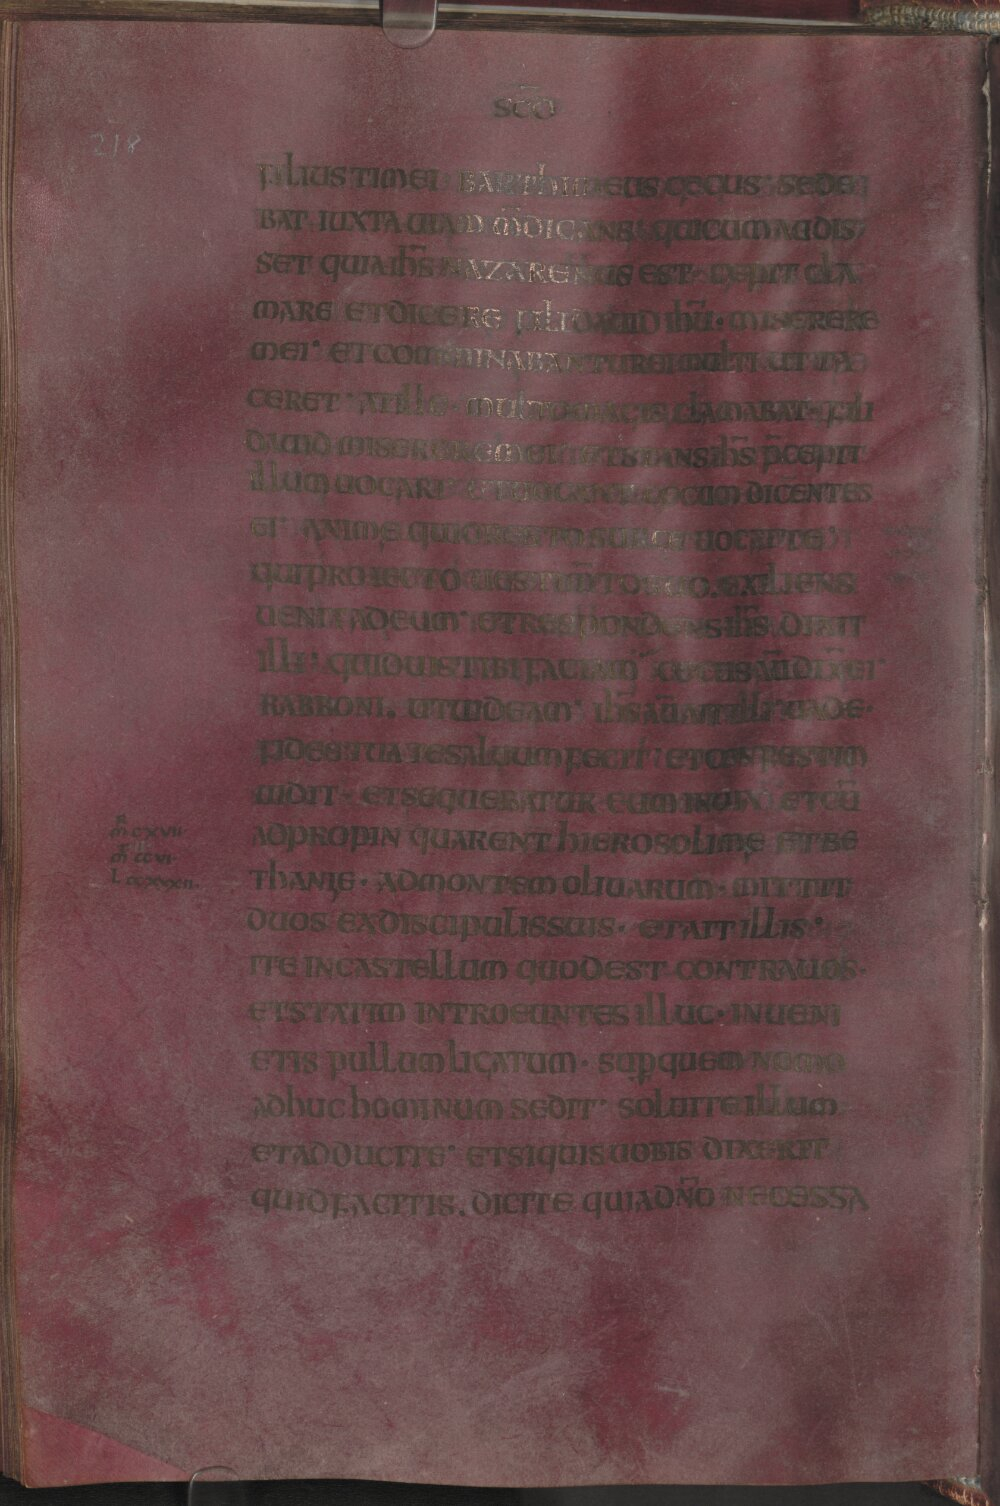 SCD̄
218
FILIUS TIMEI BARTHIMEUS CECUS· SEDE
BAT· IUXTA UIAM M̄DICANS· QUI CUM AUDIS
SET QUIA IH̄S NAZARENUS EST· CEPIT CLA
MARE ET DICERE FILI DAUID IH̄U· MISERERE
MEI· ET COMMINABANTUR EI MULTI UT TA
CERET· AT ILLE· MULTO MAGIS CLAMABAT· FILI
DAUID MISERERE MEI· ET STANS IH̄S P̄CEPIT
ILLUM UOCARI· ET UOCANT CECUM DICENTES
EI· ANIMEQUIOR ESTO SURGE UOCAT TE·
QUI PROIECTO UESTIM̄TO SUO EXILIENS
UENIT AD EUM· ET RESPONDENS IH̄S DIXIT
ILLI· QUID UIS TIBI FACIAM CECUS AŪ DIX̄ EI·
RABBONI· UT UIDEAM· IH̄S AŪ AIT ILLI· UADE·
FIDES TUA TE SALUUM FECIT· ET CONFESTIM
UIDIT· ET SEQUEBATUR EUM IN UIA ET CŪ
ADPROPINQUARENT HIEROSOLIME ET BE
M̄ CXVII
M̄ CCVI·
L CCXXXII·
THANIE· AD MONTEM OLIUARUM· MITTIT
DUOS EX DISCIPULIS SUIS· ET AIT ILLIS·
ITE IN CASTELLUM QUOD EST CONTRA UOS·
ET STATIM INTROEUNTES ILLUC· INUENI
ETIS PULLUM LIGATUM· SUP QUEM NEMO
ADHUC HOMINUM SEDIT· SOLUITE ILLUM
ET ADDUCITE· ET SI QUIS UOBIS DIXERIT
QUID FACITIS· DICITE QUIA DN̄O NECESSA